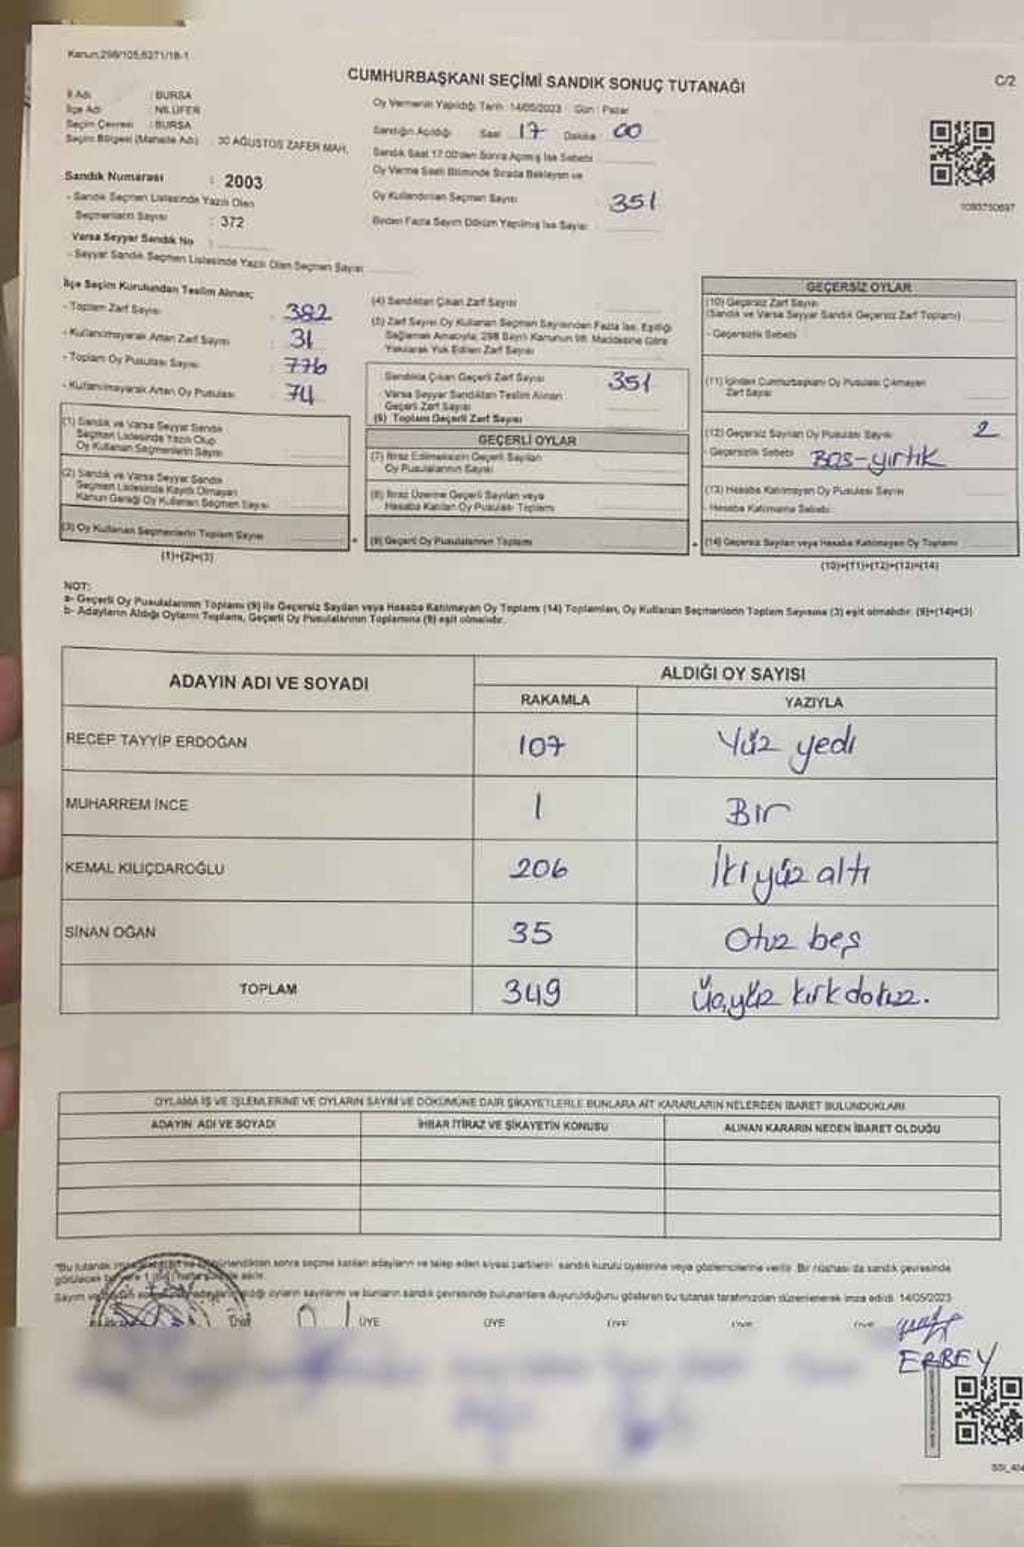 Kanun;298/105,6271/18-1
CUMHURBAŞKANI SEÇİMİ SANDIK SONUÇ TUTANAĞI
C/2
İl Adı : BURSA
İlçe Adı : NİLÜFER
Seçim Çevresi : BURSA
Seçim Bölgesi (Mahalle Adı) : 30 AĞUSTOS ZAFER MAH.
Oy Vermenin Yapıldığı Tarih : 14/05/2023 Gün : Pazar
Sandığın Açıldığı Saat 17 Dakika : 00
Sandık Saat 17.00'den Sonra Açılmış İse Sebebi
Oy Verme Saati Bitiminde Sırada Bekleyen ve
Oy Kullandırılan Seçmen Sayısı 351
Birden Fazla Sayım Döküm Yapılmış İse Sayısı :
1080750697
Sandık Numarası : 2003
- Sandık Seçmen Listesinde Yazılı Olan
Seçmenlerin Sayısı : 372
Varsa Seyyar Sandık No :
- Seyyar Sandık Seçmen Listesinde Yazılı Olan Seçmen Sayısı
İlçe Seçim Kurulundan Teslim Alınan;
- Toplam Zarf Sayısı : 382
- Kullanılmayarak Artan Zarf Sayısı : 31
- Toplam Oy Pusulası Sayısı : 776
- Kullanılmayarak Artan Oy Pusulası : 74
(1) Sandık ve Varsa Seyyar Sandık
Seçmen Listesinde Yazılı Olup
Oy Kullanan Seçmenlerin Sayısı
(2) Sandık ve Varsa Seyyar Sandık
Seçmen Listesinde Kayıtlı Olmayan
Kanun Gereği Oy Kullanan Seçmen Sayısı
(3) Oy Kullanan Seçmenlerin Toplam Sayısı
(1)+(2)=(3)
(4) Sandıktan Çıkan Zarf Sayısı
(5) Zarf Sayısı Oy Kullanan Seçmen Sayısından Fazla İse, Eşitliği
Sağlamak Amacıyla, 298 Sayılı Kanunun 98. Maddesine Göre
Yakılarak Yok Edilen Zarf Sayısı
Sandıkta Çıkan Geçerli Zarf Sayısı 351
Varsa Seyyar Sandıktan Teslim Alınan
Geçerli Zarf Sayısı
(6) Toplam Geçerli Zarf Sayısı
GEÇERLİ OYLAR
(7) İtiraz Edilmeksizin Geçerli Sayılan
Oy Pusulalarının Sayısı
(8) İtiraz Üzerine Geçerli Sayılan veya
Hesaba Katılan Oy Pusulası Toplamı
(9) Geçerli Oy Pusulalarının Toplamı
GEÇERSİZ OYLAR
(10) Geçersiz Zarf Sayısı
(Sandık ve Varsa Seyyar Sandık Geçersiz Zarf Toplamı)
- Geçersizlik Sebebi
(11) İçinden Cumhurbaşkanı Oy Pusulası Çıkmayan
Zarf Sayısı
(12) Geçersiz Sayılan Oy Pusulası Sayısı 2
- Geçersizlik Sebebi Boş-yırtık
(13) Hesaba Katılmayan Oy Pusulası Sayısı
- Hesaba Katılmama Sebebi
(14) Geçersiz Sayılan veya Hesaba Katılmayan Oy Toplamı
(10)+(11)+(12)+(13)=(14)
NOT:
a- Geçerli Oy Pusulalarının Toplamı (9) ile Geçersiz Sayılan veya Hesaba Katılmayan Oy Toplamı (14) Toplamları, Oy Kullanan Seçmenlerin Toplam Sayısına (3) eşit olmalıdır. (9)+(14)=(3)
b- Adayların Aldığı Oyların Toplamı, Geçerli Oy Pusulalarının Toplamına (9) eşit olmalıdır.
ADAYIN ADI VE SOYADI
ALDIĞI OY SAYISI
RAKAMLA YAZIYLA
RECEP TAYYİP ERDOĞAN 107 Yüz yedi
MUHARREM İNCE 1 Bir
KEMAL KILIÇDAROĞLU 206 İki yüz altı
SİNAN OĞAN 35 Otuz beş
TOPLAM 349 Üçyüz kırkdokuz.
OYLAMA İŞ VE İŞLEMLERİNE VE OYLARIN SAYIM VE DÖKÜMÜNE DAİR ŞİKAYETLERLE BUNLARA AİT KARARLARIN NELERDEN İBARET BULUNDUKLARI
ADAYIN ADI VE SOYADI İHBAR İTİRAZ VE ŞİKAYETİN KONUSU ALINAN KARARIN NEDEN İBARET OLDUĞU
*Bu tutanak sonra seçime katılan adayların ve talep eden siyasi partilerin sandık kurulu üyelerine veya gözlemcilerine verilir. Bir nüshası da sandık çevresinde
görülecek bir yere 1 hafta süreyle asılır.
Sayım ve aldığı oyların sayılarını ve bunların sandık çevresinde bulunanlara duyurulduğunu gösteren bu tutanak tarafımızdan düzenlenerek imza edildi. 14/05/2023
ÜYE ÜYE ÜYE ÜYE ÜYE
ERBEY